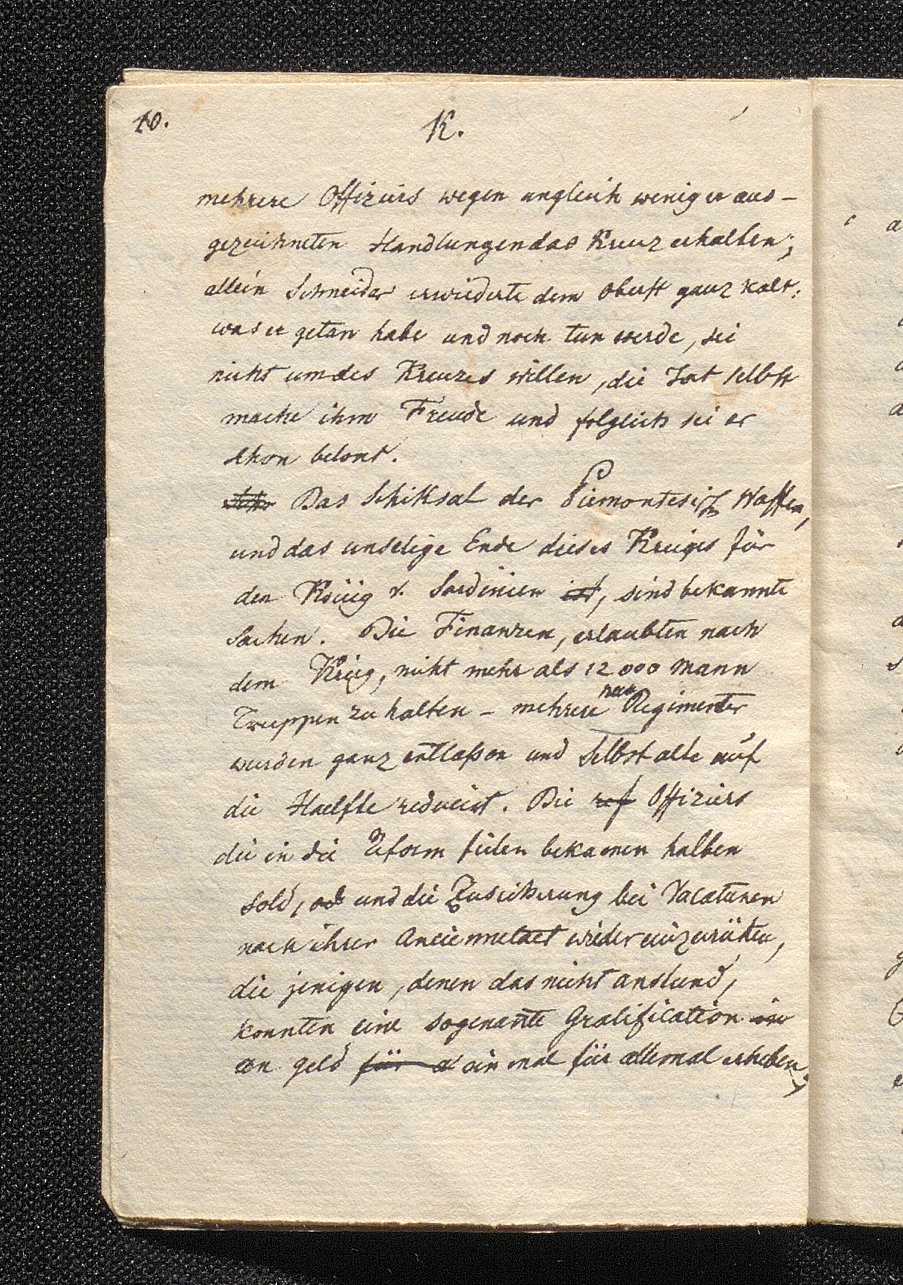 10.
K.
mehrere Offiziers wegen ungleich weniger aus-
gezeichneten Handlungen das Kreuz erhalten;
allein Schneider erwiederte dem Oberst ganz kalt:
was er getan habe und noch tun werde, sei
nicht um des Kreuzes willen, die Tat selbst
mache ihm Freude und folglich sei er
schon belont.
Das Schiksal der Piemontesisch Waffen,
und das unselige Ende dieses Krieges für
den König v. Sardinien ist, sind bekannte
Sachen. Die Finanzen, erlaubten nach
dem Krieg, nicht mehr als 12000 Mann
Truppen zu halten – mehrere neue Regimenter
wurden ganz entlaßen und selbst alte auf
die Haelfte reducirt. Die ref Offiziers
die in die Reform fielen bekamen halben
Sold, od und die Zusicherung bei Vacaturen
nach ihrer Anciennetaet wieder einzurüken,
die jenigen, denen das nicht anstund,
konnten eine sogenante Gratification in
an geld für a ein mal für allemal erheben,